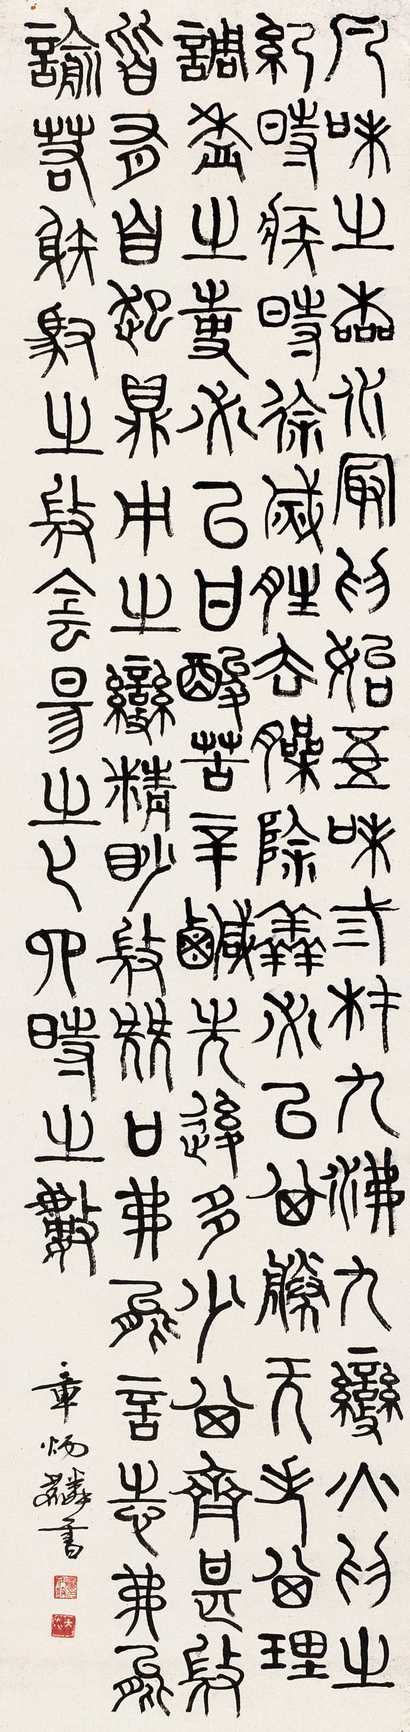 凡味之本水最為始五味三材九沸九變火為之
紀時疾時徐滅腥去臊除羶必以其勝无失其理
調盉之事必以甘酸苦辛鹹先後多少其齊甚微
皆有自起鼎中之變精眇微纖口弗能言志弗能
諭若射馭之微侌昜之化四時之數
章炳麟書